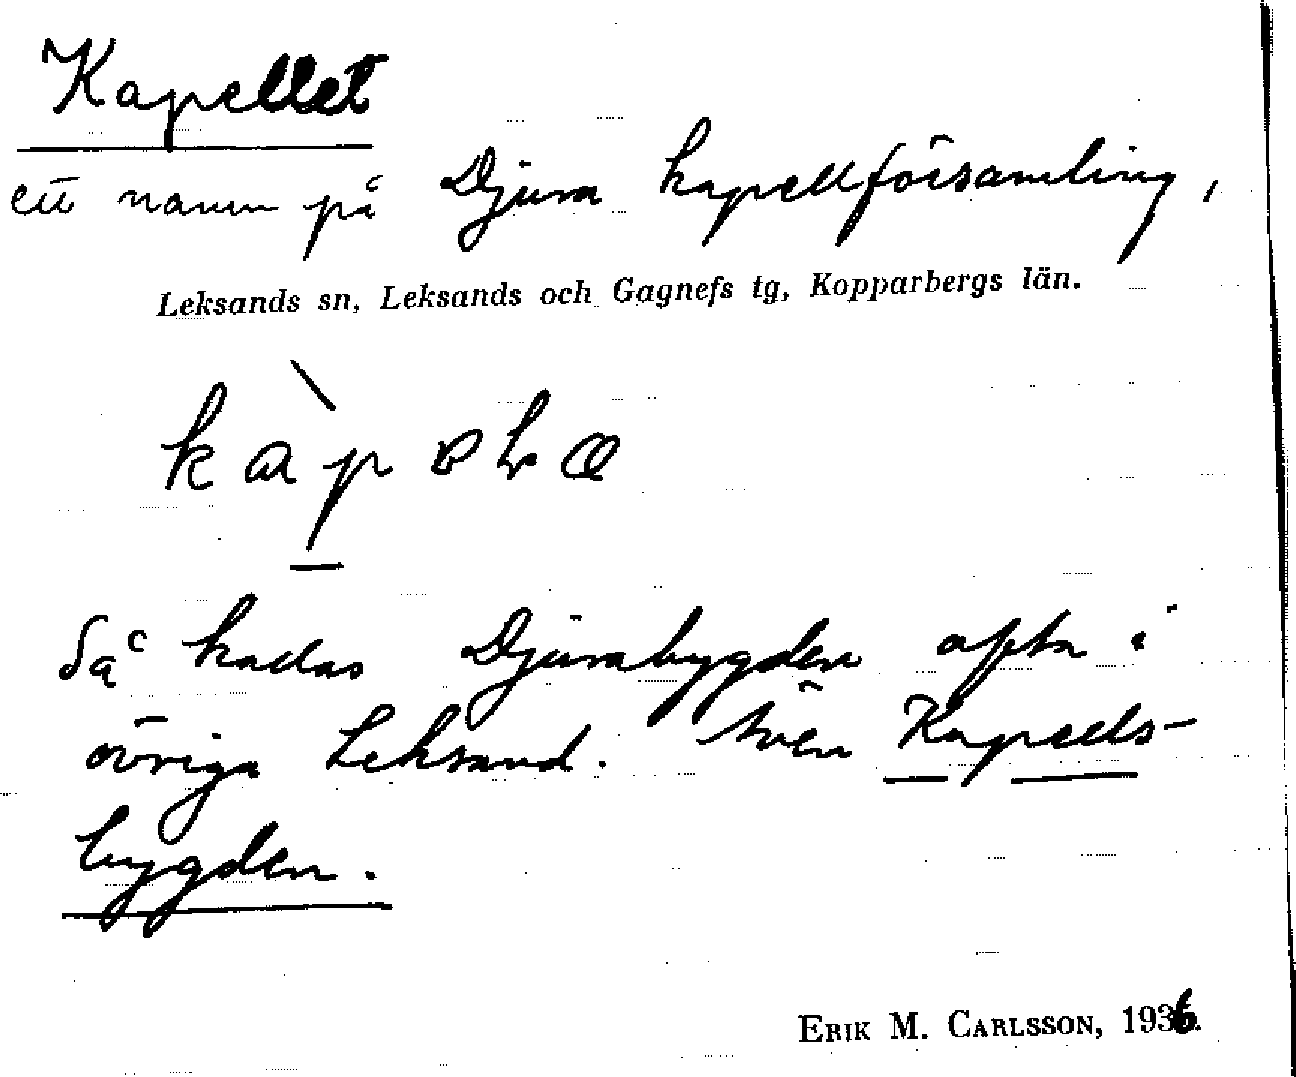 Kapellet
ett namn på Djura kapellförsamling,
Leksands sn, Leksands och Gagnefs tg, Kopparbergs län.
Så kallas Djurabygden ofta i
övriga Leksand. Även Kapells-
bygden.
ERIK M. CARLSSON, 1936.